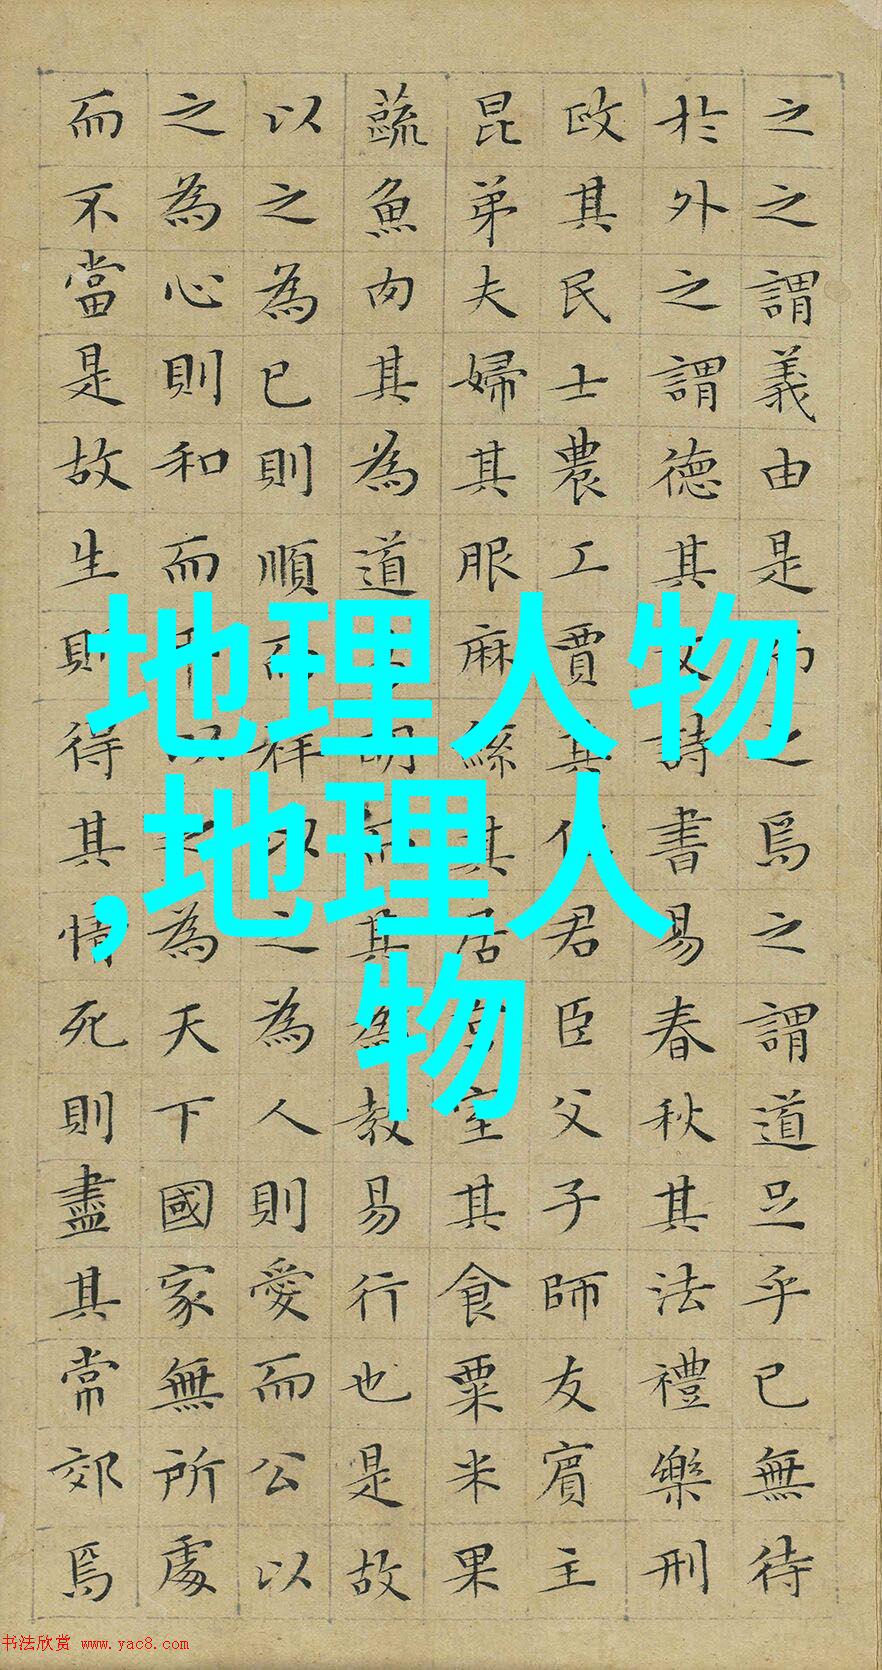 之之謂義由是而之焉之謂道足乎已無待
於外之謂德其文詩書易春秋其法禮樂刑
政其民士農工賈其位君臣父子師友賓主
昆弟夫婦其服麻絲其居宮室其食粟米果
蔬魚肉其為道明而其為教易行也是故
以之為已則順而祥以之為人則愛而公以
之為心則和而平以之為天下國家無所處
而不當是故生則得其情死則盡其常郊焉
地理人物
,地理人
物
书法欣赏 www.yac8.com